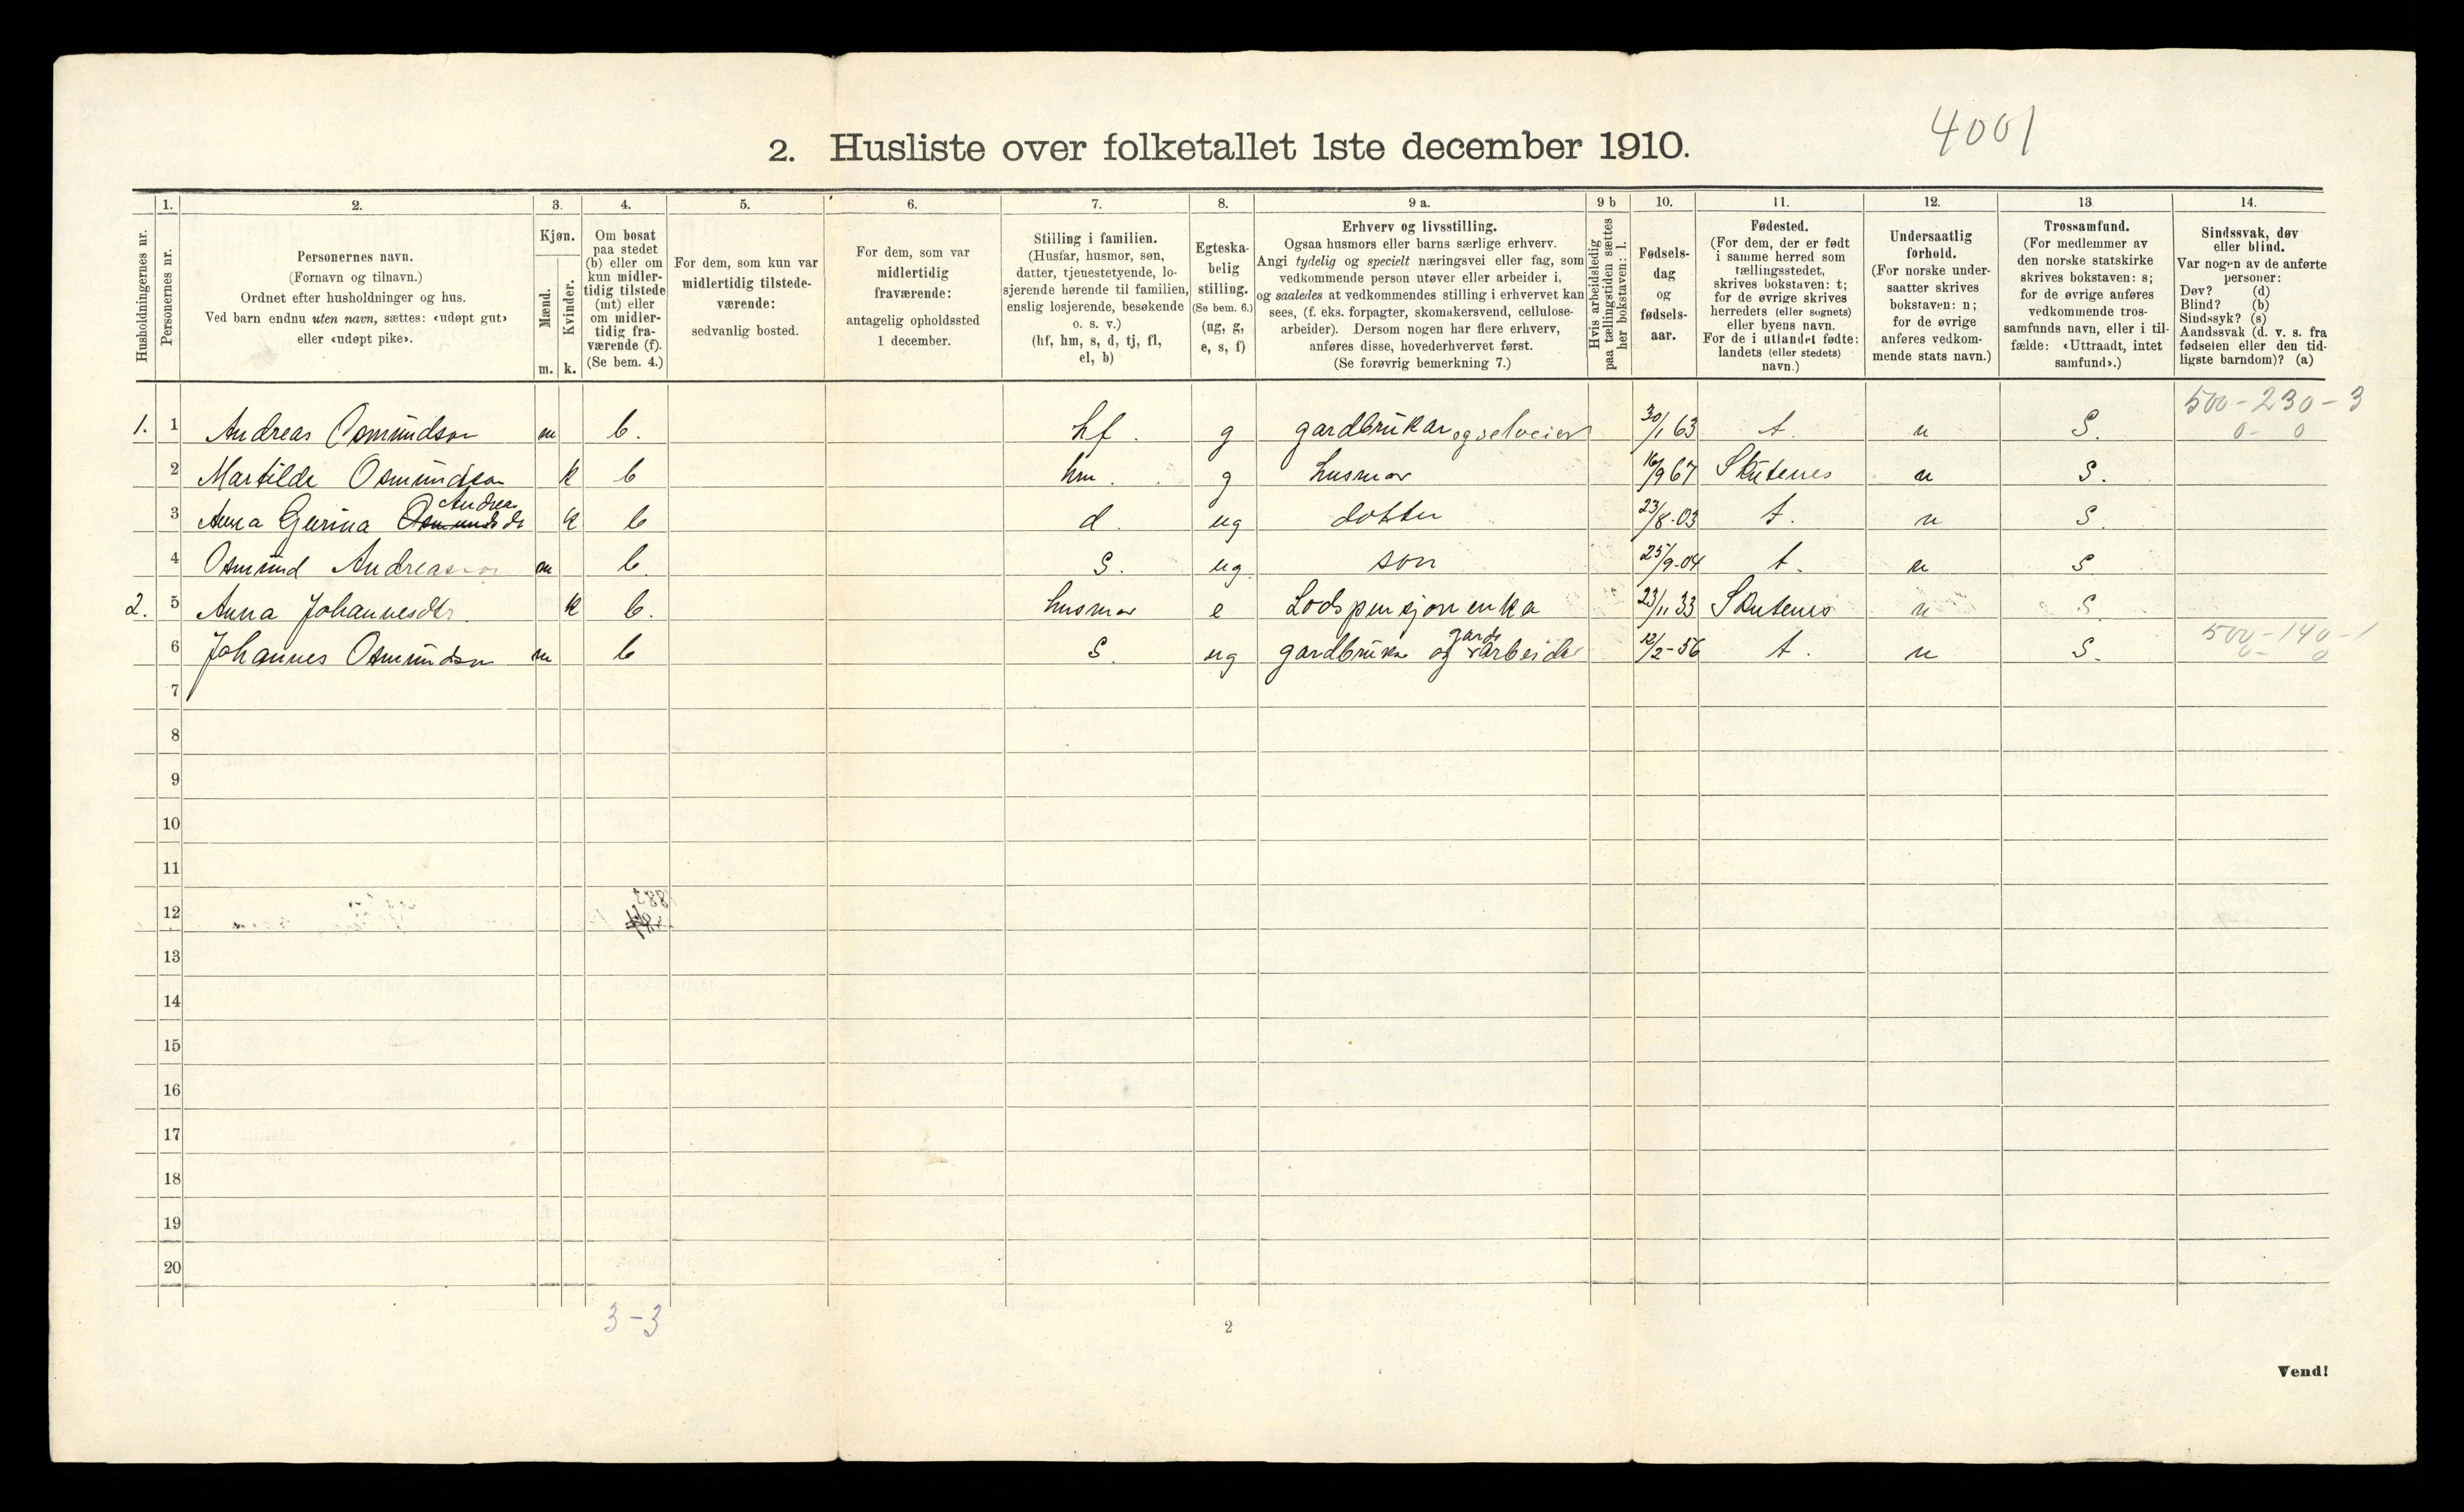 4001
2. Husliste over folketallet 1ste december 1910.
Husholdningernes nr.
1.
Personernes nr.
2.
Personernes navn.
(Fornavn og tilnavn.)
Ordnet efter husholdninger og hus.
Ved barn endnu uten navn, sættes: «udøpt gut»
eller «udøpt pike».
3.
Kjøn.
Mænd.
Kvinder.
m. k.
4.
Om bosat
paa stedet
(b) eller om
kun midler-
tidig tilstede
(mt) eller
om midler-
tidig fra-
værende (f).
(Se bem. 4.)
5.
For dem, som kun var
midlertidig tilstede-
værende:
sedvanlig bosted.
6.
For dem, som var
midlertidig
fraværende:
antagelig opholdssted
1 december.
7.
Stilling i familien.
(Husfar, husmor, søn,
datter, tjenestetyende, lo-
sjerende hørende til familien,
enslig losjerende, besøkende
o. s. v.)
(hf, hm, s, d, tj, fl,
el, b)
8.
Egteska-
belig
stilling.
(Se bem. 6.)
(ug, g,
e, s, f)
9 a.
Erhverv og livsstilling.
Ogsaa husmors eller barns særlige erhverv.
Angi tydelig og specielt næringsvei eller fag, som
vedkommende person utøver eller arbeider i,
og saaledes at vedkommendes stilling i erhvervet kan
sees, (f. eks. forpagter, skomakersvend, cellulose-
arbeider). Dersom nogen har flere erhverv,
anføres disse, hovederhvervet først.
(Se forøvrig bemerkning 7.)
9 b
Hvis arbeidsledig
paa tællingstiden sættes
her bokstaven: l.
10.
Fødsels-
dag
og
fødsels-
aar.
11.
Fødested.
(For dem, der er født
i samme herred som
tællingsstedet,
skrives bokstaven: t;
for de øvrige skrives
herredets (eller sognets)
eller byens navn.
For de i utlandet fødte:
landets (eller stedets)
navn.)
12.
Undersaatlig
forhold.
(For norske under-
saatter skrives
bokstaven: n;
for de øvrige
anføres vedkom-
mende stats navn.)
13
Trossamfund.
(For medlemmer av
den norske statskirke
skrives bokstaven: s;
for de øvrige anføres
vedkommende tros-
samfunds navn, eller i til-
fælde: «Uttraadt, intet
samfund».)
14.
Sindssvak, døv
eller blind.
Var nogen av de anførte
personer:
Døv? (d)
Blind? (b)
Sindssyk? (s)
Aandssvak (d. v. s. fra
fødselen eller den tid-
ligste barndom)? (a)
500-230-3
1. 1 Andreas Osmundson m b. hf. g gardbrukar og selveier 30/1 63 t. n S. 0- 0
2 Martilde Osmundson k b hm. g husmor 16/9 67 Skutenes n S.
Andrea
3 Anna Gurina Osmundsdt k b d. ug dotter 23/8-03 t. n S.
4 Osmund Andreasson m b. S. ug. son 25/9-04 t. n S
2. 5 Anna Johannesdtr. k b. husmor e Lodspensjonenka 23/11 33 Skutenes n S.
500-140-1
gards
6 Johannes Osmundson m b S. ug gardbrukar og arbeider 12/2-56 t. n S. 0- 0
7
8
9
10
11
12
13
14
15
16
17
18
19
20
3-3
2
Vend!